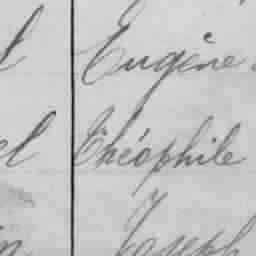 Eugène
el Théophile
Joseph